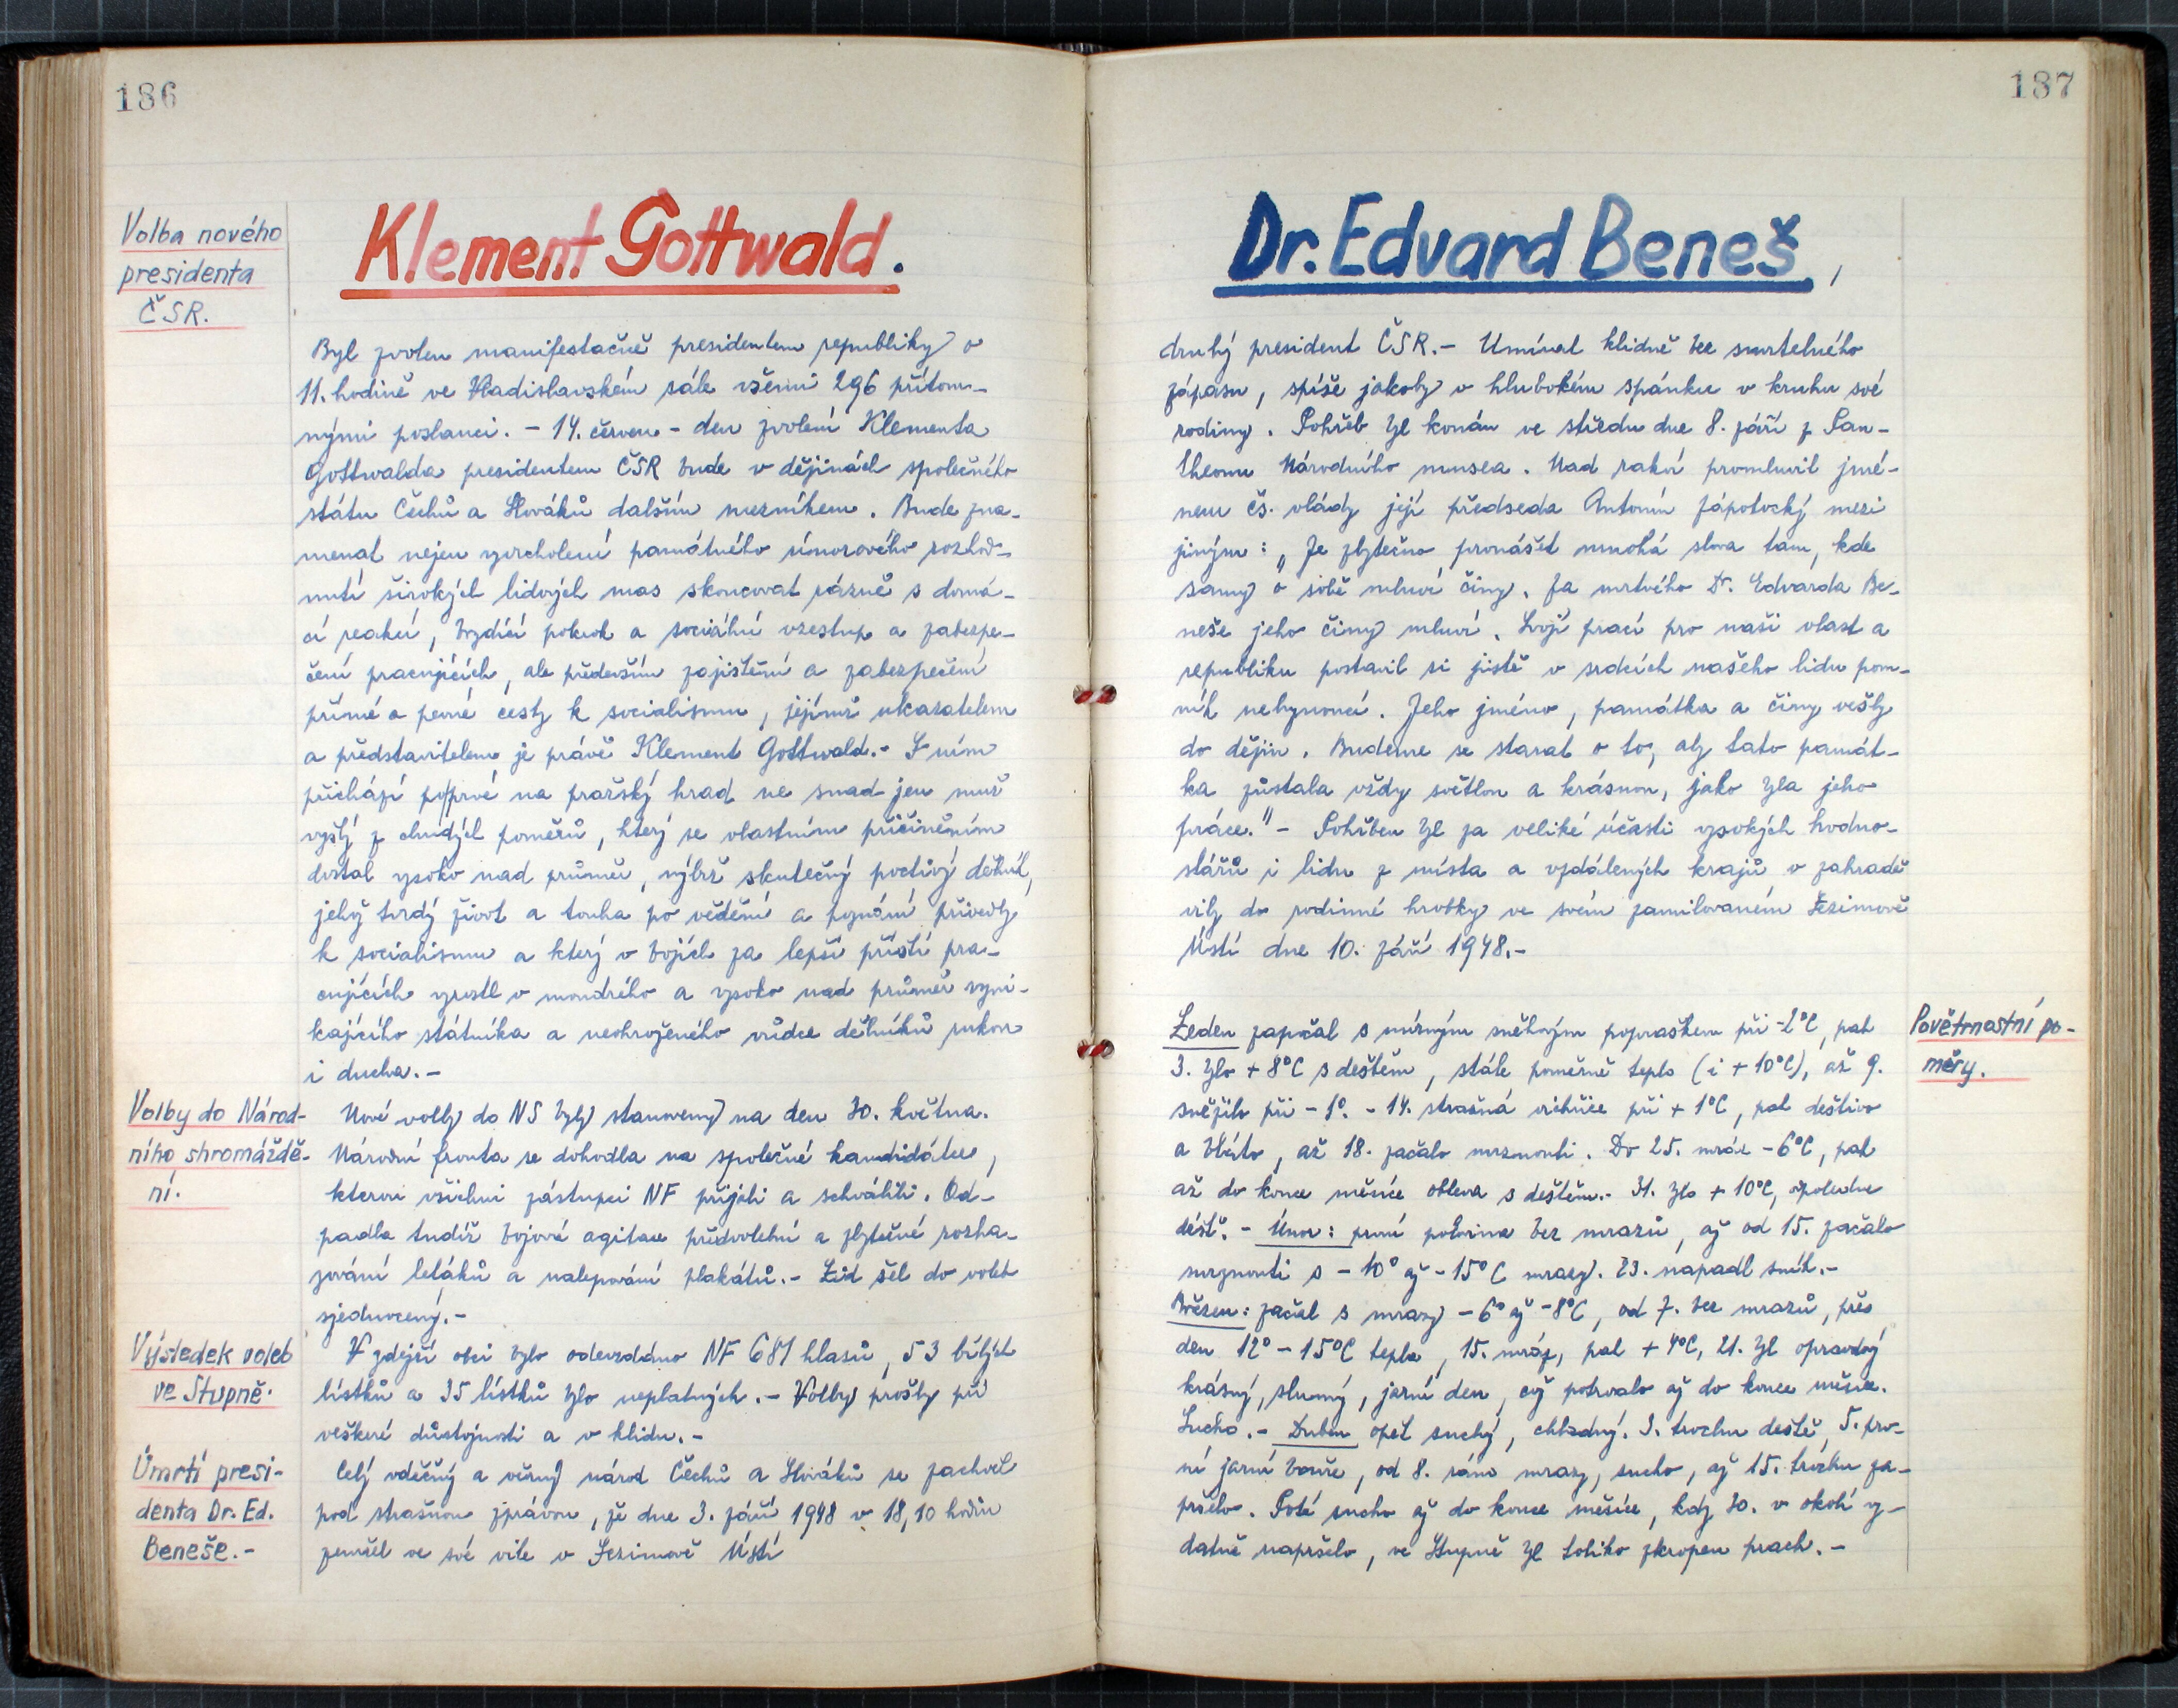 186
Volba nového
presidenta
ČSR.
Klement Gottwald.
Byl zvolen manifestačně presidentem republiky o
11. hodině ve Vladislavském sále všemi 296 přítom-
nými poslanci. - 14. červen - den zvolení Klementa
Gottwalda presidentem ČSR bude v dějinách společného
státu Čechů a Slováků dalším mezníkem. Bude zna-
menat nejen vyvrcholení památného únorového rozhod-
nutí širokých lidových mas skoncovat rázně s domá-
cí reakcí, brzdící pokrok a sociální vzestup a zabezpe-
čení pracujících, ale především zajištění a zabezpečení
přímé a pevné cesty k socialismu, jejímž ukazatelem
a představitelem je právě Klement Gottwald.- S ním
přichází poprvé na pražský hrad ne snad jen muž
vyšlý z chudých poměrů, který se vlastním přičiněním
dostal vysoko nad průměr, nýbrž skutečný poctivý dělník,
jehož tvrdý život a touha po vědění a poznání přivedly
k socialismu a který v bojích za lepší příští pra-
cujících vyrostl v moudrého a vysoko nad průměr vyni-
kajícího státníka a neohroženého vůdce dělníků rukou
i ducha.-
Volby do Národ-
ního shromáždě-
ní.
Nové volby do NS byly stanoveny na den 30. května.
Národní fronta se dohodla na společné kandidátce,
kterou všichni zástupci NF přijali a schválili. Od-
padla tudíž bojová agitace předvolební a zbytečné rozha-
zování letáků a nalepování plakátů.- Lid šel do voleb
sjednocený.-
Výsledek voleb
ve Stupně.
V zdejší obci bylo odevzdáno NF 681 hlasů, 53 bílých
lístků a 35 lístků bylo neplatných.- Volby prošly při
veškeré důstojnosti a v klidu.-
Úmrtí presi-
denta Dr. Ed.
Beneše.-
Celý vděčný a věrný národ Čechů a Slováků se zachvěl
pod strašnou zprávou, že dne 3. září 1948 v 18,10 hodin
zemřel ve své vile v Sezimově Ústí
187
Dr. Edvard Beneš,
druhý president ČSR.- Umíral klidně bez smrtelného
zápasu, spíše jakoby v hlubokém spánku v kruhu své
rodiny. Pohřeb byl konán ve středu dne 8. září z Pan-
theonu Národního musea. Nad rakví promluvil jmé-
nem čs. vlády její předseda Antonín Zápotocký mezi
jiným: „Je zbytečno pronášet mnohá slova tam, kde
samy o sobě mluví činy. Za mrtvého Dr. Edvarda Be-
neše jeho činy mluví. Svojí prací pro naši vlast a
republiku postavil si jistě v srdcích našeho lidu pom-
ník nehynoucí. Jeho jméno, památka a činy vešly
do dějin. Budeme se starat o to, aby tato památ-
ka zůstala vždy světlou a krásnou, jako byla jeho
práce." - Pohřben byl za veliké účasti vysokých hodno-
stářů i lidu z místa a vzdálených krajů v zahradě
vily do rodinné hrobky ve svém zamilovaném Sezimově
Ústí dne 10. září 1948.-
Povětrnostní po-
měry.
Leden započal s mírným sněhovým popraškem při -2°C, pak
3. bylo +8°C s deštěm, stále poměrně teplo (i +10°C), až 9.
sněžilo při -1°. - 14. strašná vichřice při +1°C, pak deštivo
a bláto, až 18. začalo mrznouti. Do 25. mráz -6°C, pak
až do konce měsíce obleva s deštěm.- 31. bylo +10°C, odpoledne
déšť. - Únor: první polovina bez mrazů, až od 15. začalo
mrznouti s -10° až -15°C mrazy. 23. napadl sníh.-
Březen: začal s mrazy -6° až -8°C, od 7. bez mrazů, přes
den 12° - 15°C tepla, 15. mráz, pak +4°C, 21. byl opravdový
krásný, slunný, jarní den, což potrvalo až do konce měsíce.
Sucho.- Duben opět suchý, chladný. 3. trochu deště, 5. prv-
ní jarní bouře, od 8. ráno mrazy, sucho, až 15. trochu za-
pršelo. Poté sucho až do konce měsíce, kdy 30. v okolí vy-
datně napršelo, ve Stupně byl toliko zkropen prach.-